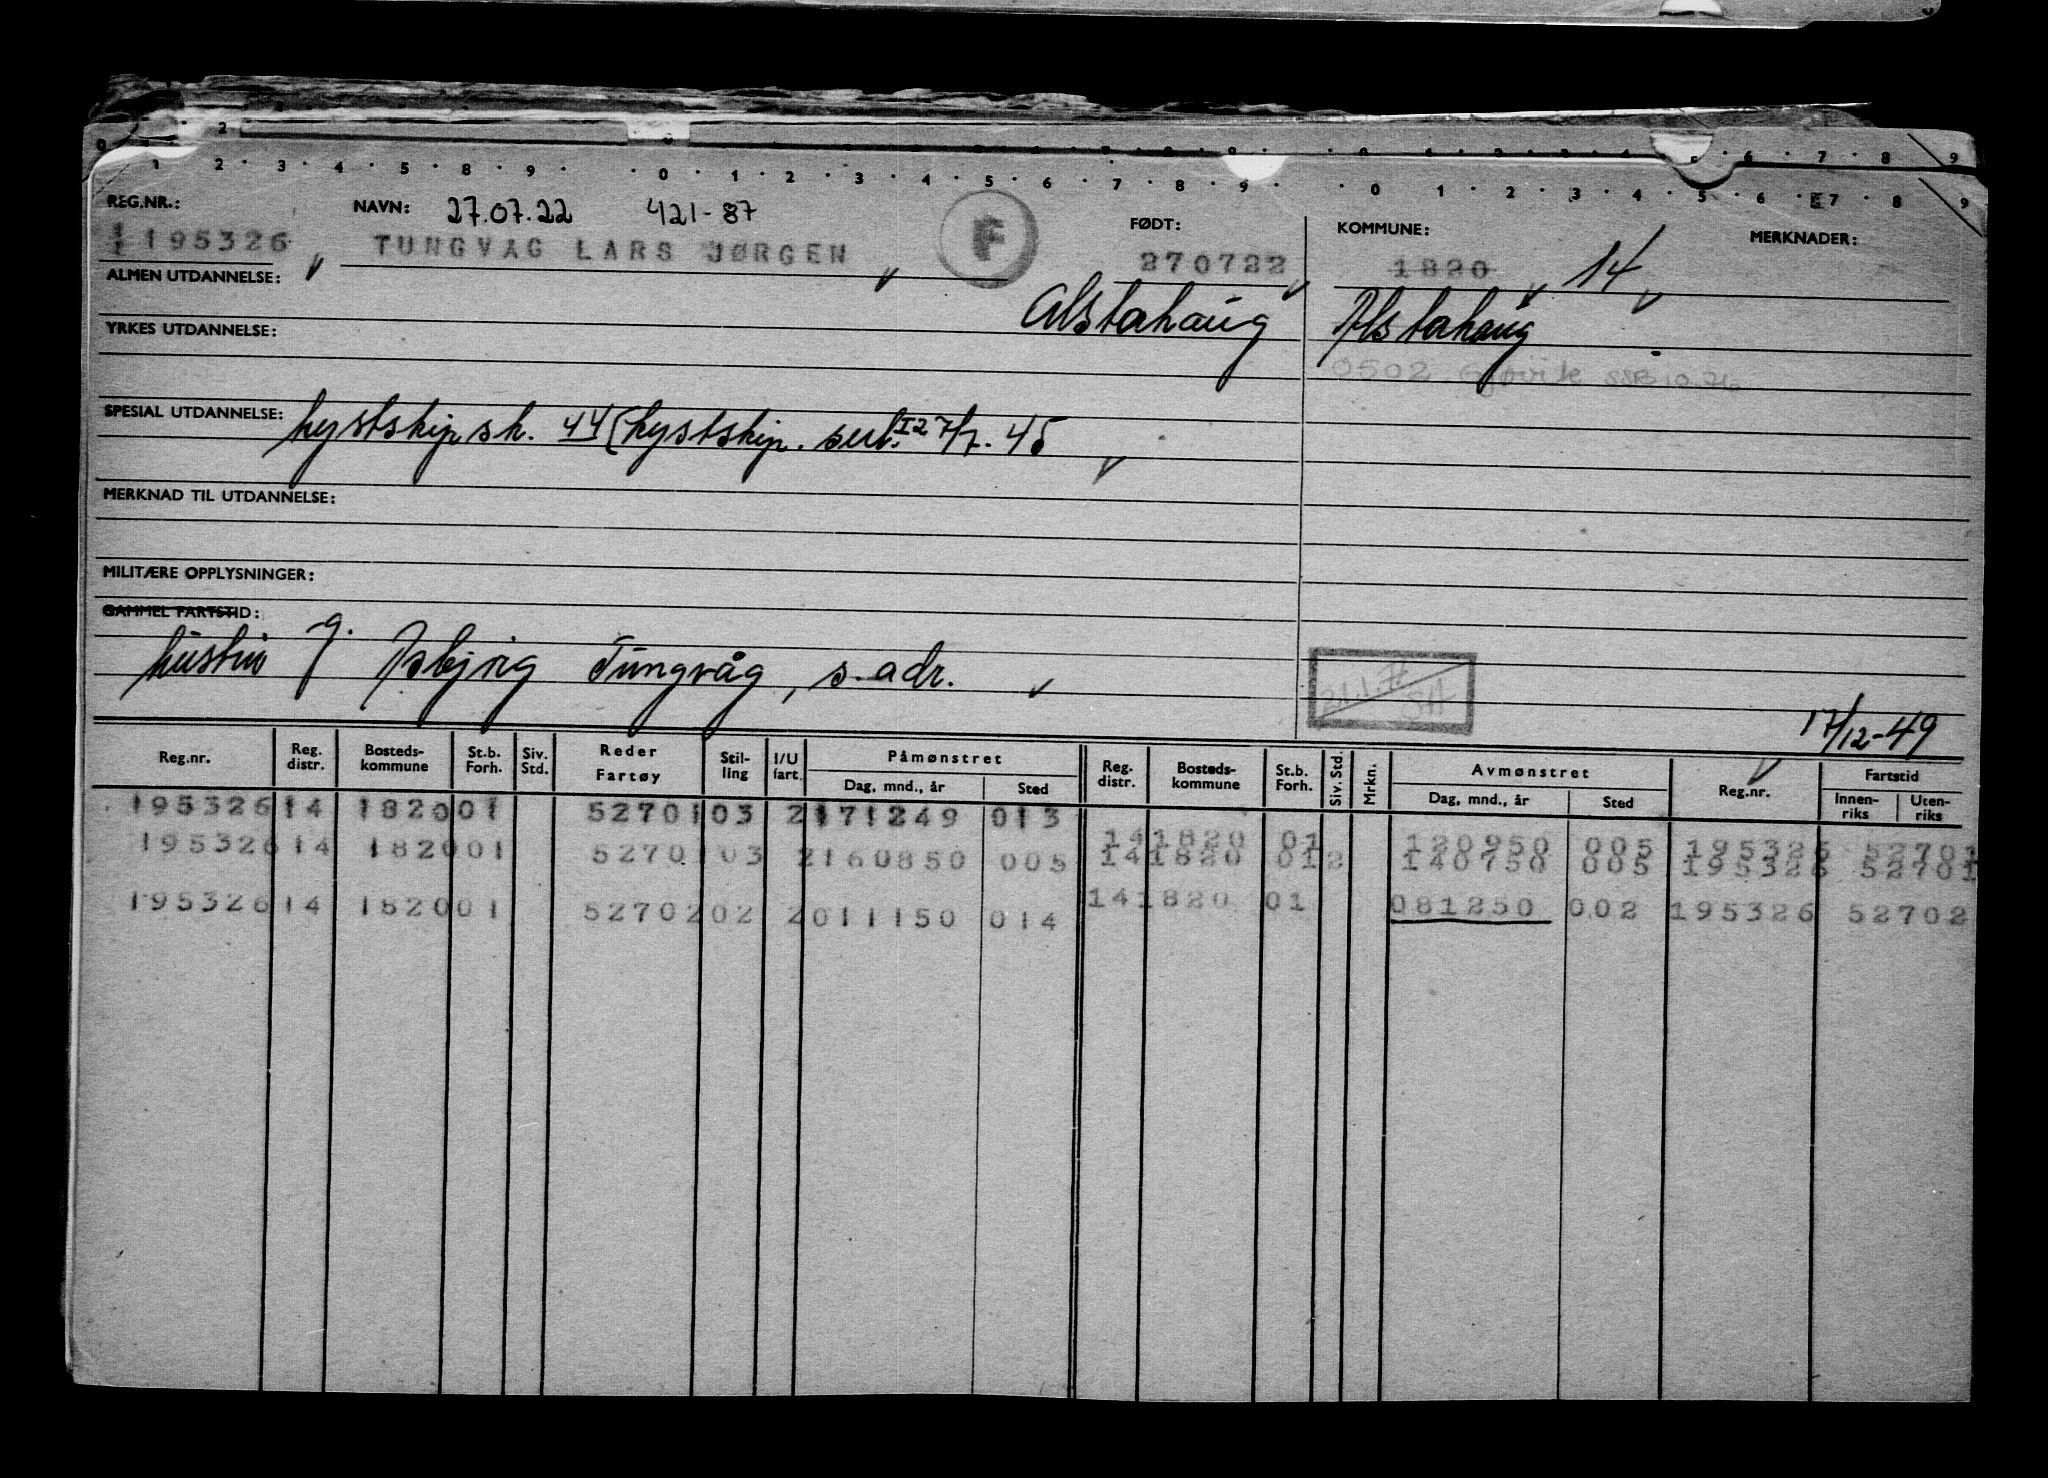 REG.NR.: NAVN: 27.07.22 421-87 FØDT: KOMMUNE: MERKNADER:
195326 TUNGVAG LARS JØRGEN F 270722 1820 14
ALMEN UTDANNELSE:
Alstahaug Alstahaug
YRKES UTDANNELSE:
0502 Gjøvik SSB 10.76
SPESIAL UTDANNELSE: kystskip.sk. 44 (kystskip. sert. 7/7-45
MERKNAD TIL UTDANNELSE:
MILITÆRE OPPLYSNINGER:
GAMMEL FARTSTID:
hustru g. Asbjørg Tungvåg, s. adr.
17/12-49
Reg.nr. Reg. distr. Bosteds-kommune St.b. Forh. Siv. Std. Reder Fartøy Stil-ling I/U fart. Påmønstret Dag, mnd., år Sted Reg. distr. Bosteds-kommune St.b. Forh. Siv. Std. Mrkn. Avmønstret Dag, mnd., år Sted Reg.nr. Fartstid Innen-riks Uten-riks
195326 14 1820 01 52701 03 2 171249 013
14 1820 01 120950 005 195326 52701
195326 14 1820 01 52701 03 2 160850 005 14 1820 01 2 140750 005 195326 52701
195326 14 1820 01 52702 02 2 011150 014 14 1820 01 081250 002 195326 52702